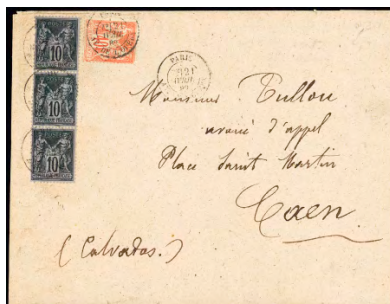 10
10
10
PARIS
Monsieur Tullou
avoué d'appel
Place Saint Martin
Caen
(Calvados.)